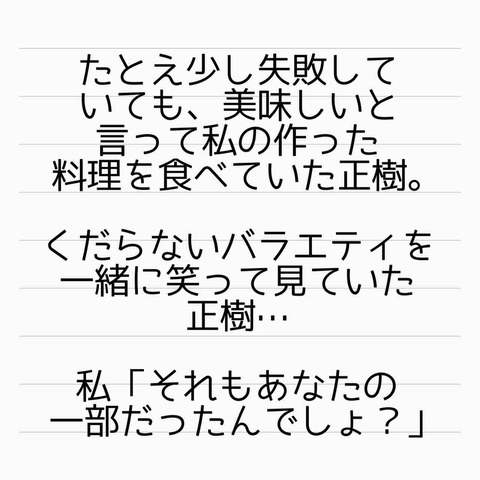 たとえ少し失敗して
いても、美味しいと
言って私の作った
料理を食べていた正樹。
くだらないバラエティを
一緒に笑って見ていた
正樹…
私「それもあなたの
一部だったんでしょ？」